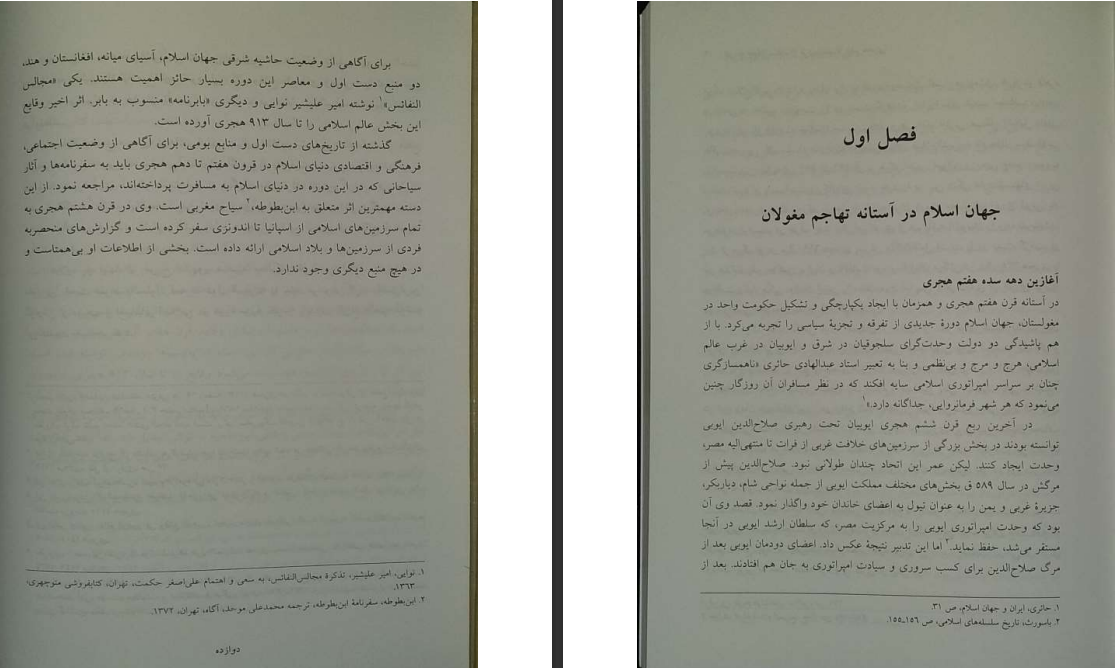 برای آگاهی از وضعیت حاشیه شرقی جهان اسلام، آسیای میانه، افغانستان و هند،
دو منبع دست اول و معاصر این دوره بسیار حائز اهمیت هستند. یکی «مجالس
النفائس»۱ نوشته امیر علیشیر نوایی و دیگری «بابرنامه» منسوب به بابر. اثر اخیر وقایع
این بخش عالم اسلامی را تا سال ۹۱۳ هجری آورده است.
گذشته از تاریخ‌های دست اول و منابع بومی، برای آگاهی از وضعیت اجتماعی،
فرهنگی و اقتصادی دنیای اسلام در قرون هفتم تا دهم هجری باید به سفرنامه‌ها و آثار
سیاحانی که در این دوره در دنیای اسلام به مسافرت پرداخته‌اند، مراجعه نمود. از این
دسته مهمترین اثر متعلق به ابن‌بطوطه،۲ سیاح مغربی است. وی در قرن هشتم هجری به
تمام سرزمین‌های اسلامی از اسپانیا تا اندونزی سفر کرده است و گزارش‌های منحصربه
فردی از سرزمین‌ها و بلاد اسلامی ارائه داده است. بخشی از اطلاعات او بی‌همتاست و
در هیچ منبع دیگری وجود ندارد.
۱. نوایی، امیر علیشیر، تذکرة مجالس‌النفائس، به سعی و اهتمام علی‌اصغر حکمت، تهران، کتابفروشی منوچهری،
۱۳۶۳.
۲. ابن‌بطوطه، سفرنامة ابن‌بطوطه، ترجمه محمدعلی موحد، آگاه، تهران، ۱۳۷۲.
دوازده
فصل اول
جهان اسلام در آستانه تهاجم مغولان
آغازین دهه سده هفتم هجری
در آستانه قرن هفتم هجری و همزمان با ایجاد یکپارچگی و تشکیل حکومت واحد در
مغولستان، جهان اسلام دورة جدیدی از تفرقه و تجزیة سیاسی را تجربه می‌کرد. با از
هم پاشیدگی دو دولت وحدت‌گرای سلجوقیان در شرق و ایوبیان در غرب عالم
اسلامی، هرج و مرج و بی‌نظمی و بنا به تعبیر استاد عبدالهادی حائری «ناهمسازگری
چنان بر سراسر امپراتوری اسلامی سایه افکند که در نظر مسافران آن روزگار چنین
می‌نمود که هر شهر فرمانروایی، جداگانه دارد.»۱
در آخرین ربع قرن ششم هجری ایوبیان تحت رهبری صلاح‌الدین ایوبی
توانسته بودند در بخش بزرگی از سرزمین‌های خلافت غربی از فرات تا منتهی‌الیه مصر،
وحدت ایجاد کنند. لیکن عمر این اتحاد چندان طولانی نبود. صلاح‌الدین پیش از
مرگش در سال ۵۸۹ ق بخش‌های مختلف مملکت ایوبی از جمله نواحی شام، دیاربکر،
جزیرة غربی و یمن را به عنوان تیول به اعضای خاندان خود واگذار نمود. قصد وی آن
بود که وحدت امپراتوری ایوبی را به مرکزیت مصر، که سلطان ارشد ایوبی در آنجا
مستقر می‌شد، حفظ نماید.۲ اما این تدبیر نتیجة عکس داد. اعضای دودمان ایوبی بعد از
مرگ صلاح‌الدین برای کسب سروری و سیادت امپراتوری به جان هم افتادند. بعد از
۱. حائری، ایران و جهان اسلام، ص ۳۱.
۲. باسورث، تاریخ سلسله‌های اسلامی، ص ۱۵۶ـ۱۵۵.